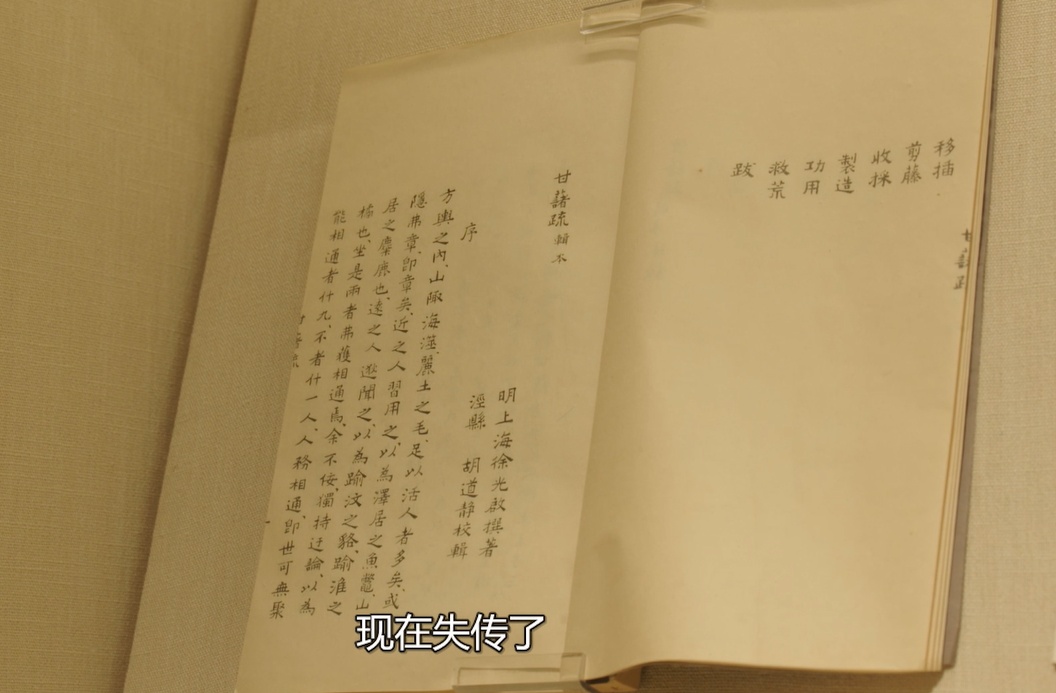 移插
剪藤
收採
製造
功用
救荒
跋
甘藷疏
甘藷疏輯本
明上海徐光啟撰著
涇縣 胡道靜校輯
序
方輿之內、山陬海澨、麗土之毛、足以活人者多矣、或
隱弗章、即章矣、近之人習用之、以為澤居之魚鼈、山
居之麋鹿也、遠之人逖聞之、以為踰汶之貉、踰淮之
橘也、坐是兩者弗獲相通焉、余不佞、獨持迂論、以為
能相通者什九、不者什一、人人務相通、即世可無
现在失传了